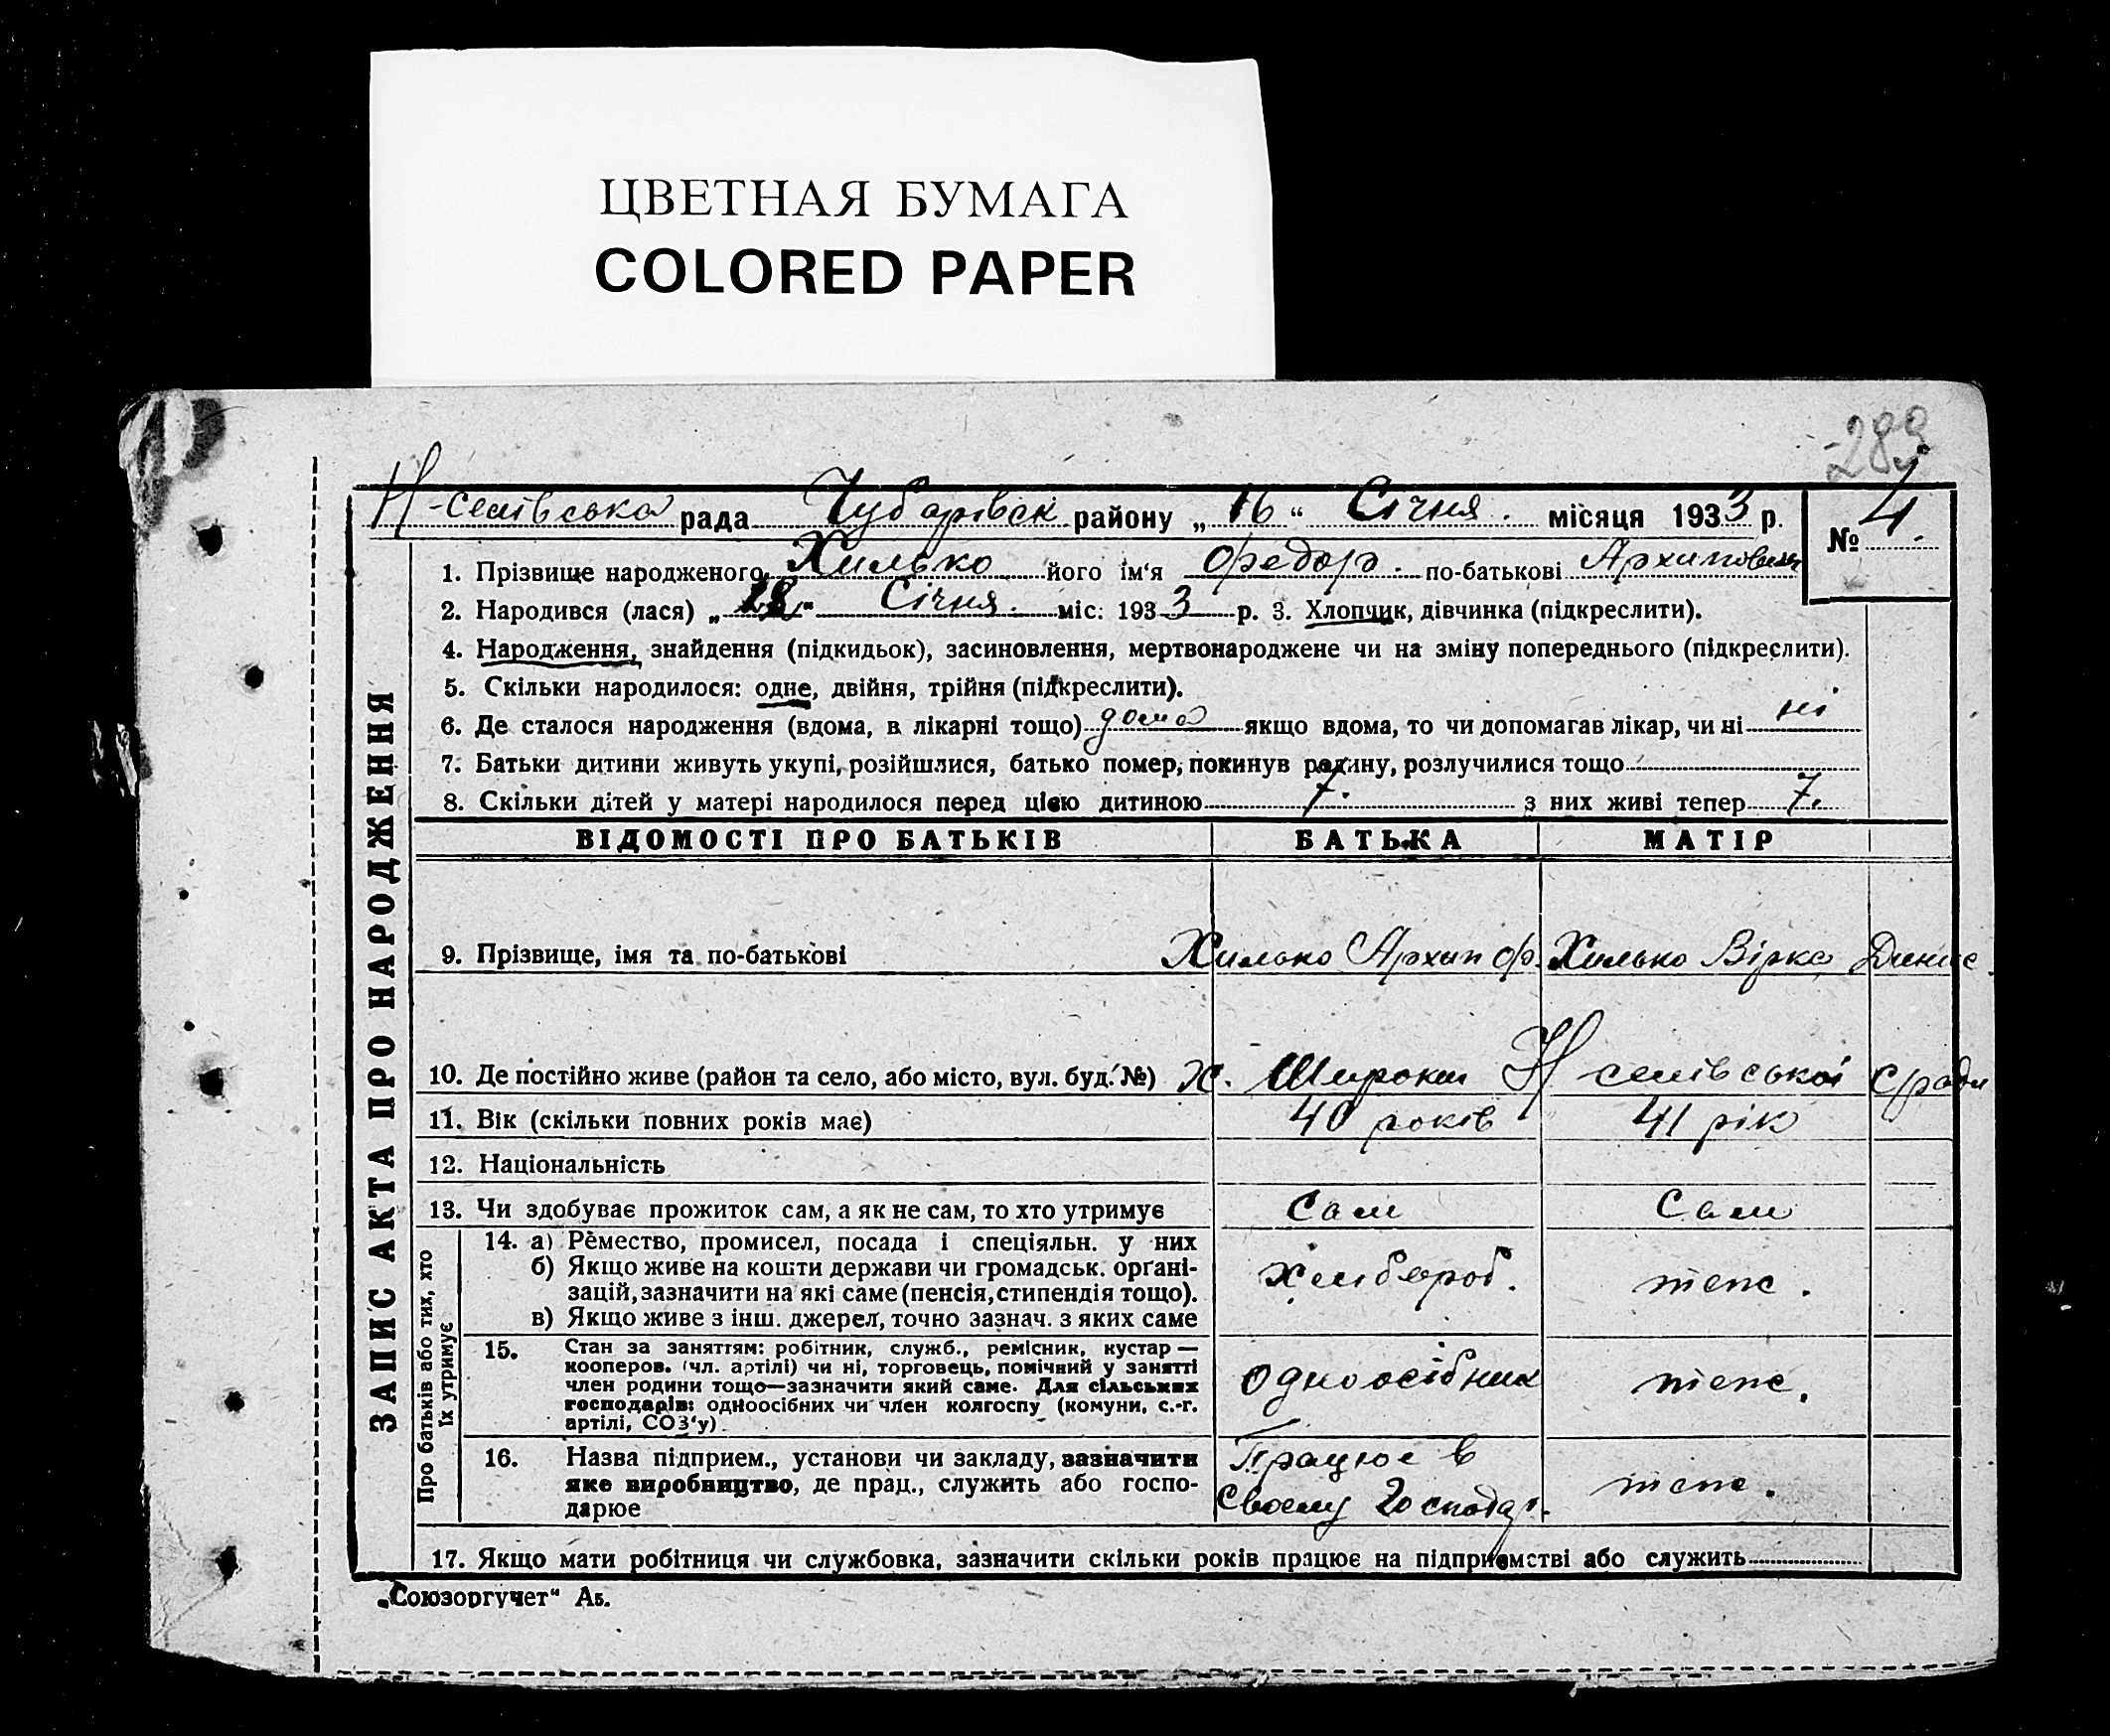 ЦВЕТНАЯ БУМАГА
COLORED PAPER
289
Н-семівсько рада Чубарівск району „16“ Січня. місяця 1933 р. № 4.
1. Прізвище народженого Хилько його ім‘я Федор. по-батькові Архипович
2. Народився (лася) „ “ Січня. міс. 1933 р. 3. Хлопчик, дівчинка (підкреслити).
4. Народження, знайдення (підкидьок), засиновлення, мертвонароджене чи на зміну попереднього (підкреслити).
5. Скільки народилося: одне, двійня, трійня (підкреслити).
6. Де сталося народження (вдома, в лікарні тощо) дома якщо вдома, то чи допомагав лікар, чи ні ні
7. Батьки дитини живуть укупі, розійшлися, батько помер, покинув родину, розлучилися тощо
8. Скільки дітей у матері народилося перед цією дитиною 7. з них живі тепер 7.
ЗАПИС АКТА ПРО НАРОДЖЕННЯ
ВІДОМОСТІ ПРО БАТЬКІВ БАТЬКА МАТІР
9. Прізвище, імя та по-батькові Хилько Архип Ф. Хилько Вірка Динис.
10. Де постійно живе (район та село, або місто, вул. буд. №) х. Широки Н семівської с/ради
11. Вік (скільки повних років має) 40 років 41 рік
12. Національність
13. Чи здобуває прожиток сам, а як не сам, то хто утримує Сам Сам
Про батьків або тих, хто їх утримує
14. а) Ремество, промисел, посада і спеціяльн. у них
б) Якщо живе на кошти держави чи громадськ. органі-
зацій, зазначити на які саме (пенсія, стипендія тощо). Хлібороб. теж.
в) Якщо живе з інш. джерел, точно зазнач. з яких саме
15. Стан за заняттям: робітник, служб., ремісник, кустар —
кооперов. (чл. артілі) чи ні, торговець, помічний у занятті
член родини тощо—зазначити який саме. Для сільських одноосібник теж.
господарів: одноосібних чи член колгоспу (комуни, с.-г.
артілі, СОЗ‘у)
16. Назва підприєм., установи чи закладу, зазначити Працює в
яке виробництво, де прац., служить або госпо- своєму господар. теж.
дарює
17. Якщо мати робітниця чи службовка, зазначити скільки років працює на підприємстві або служить
„Союзоргучет“ Аб.